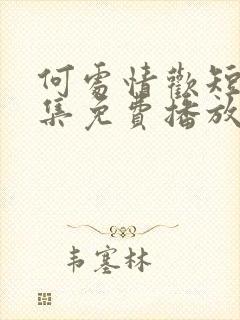 何處情歡短
集免費播放
韦塞林